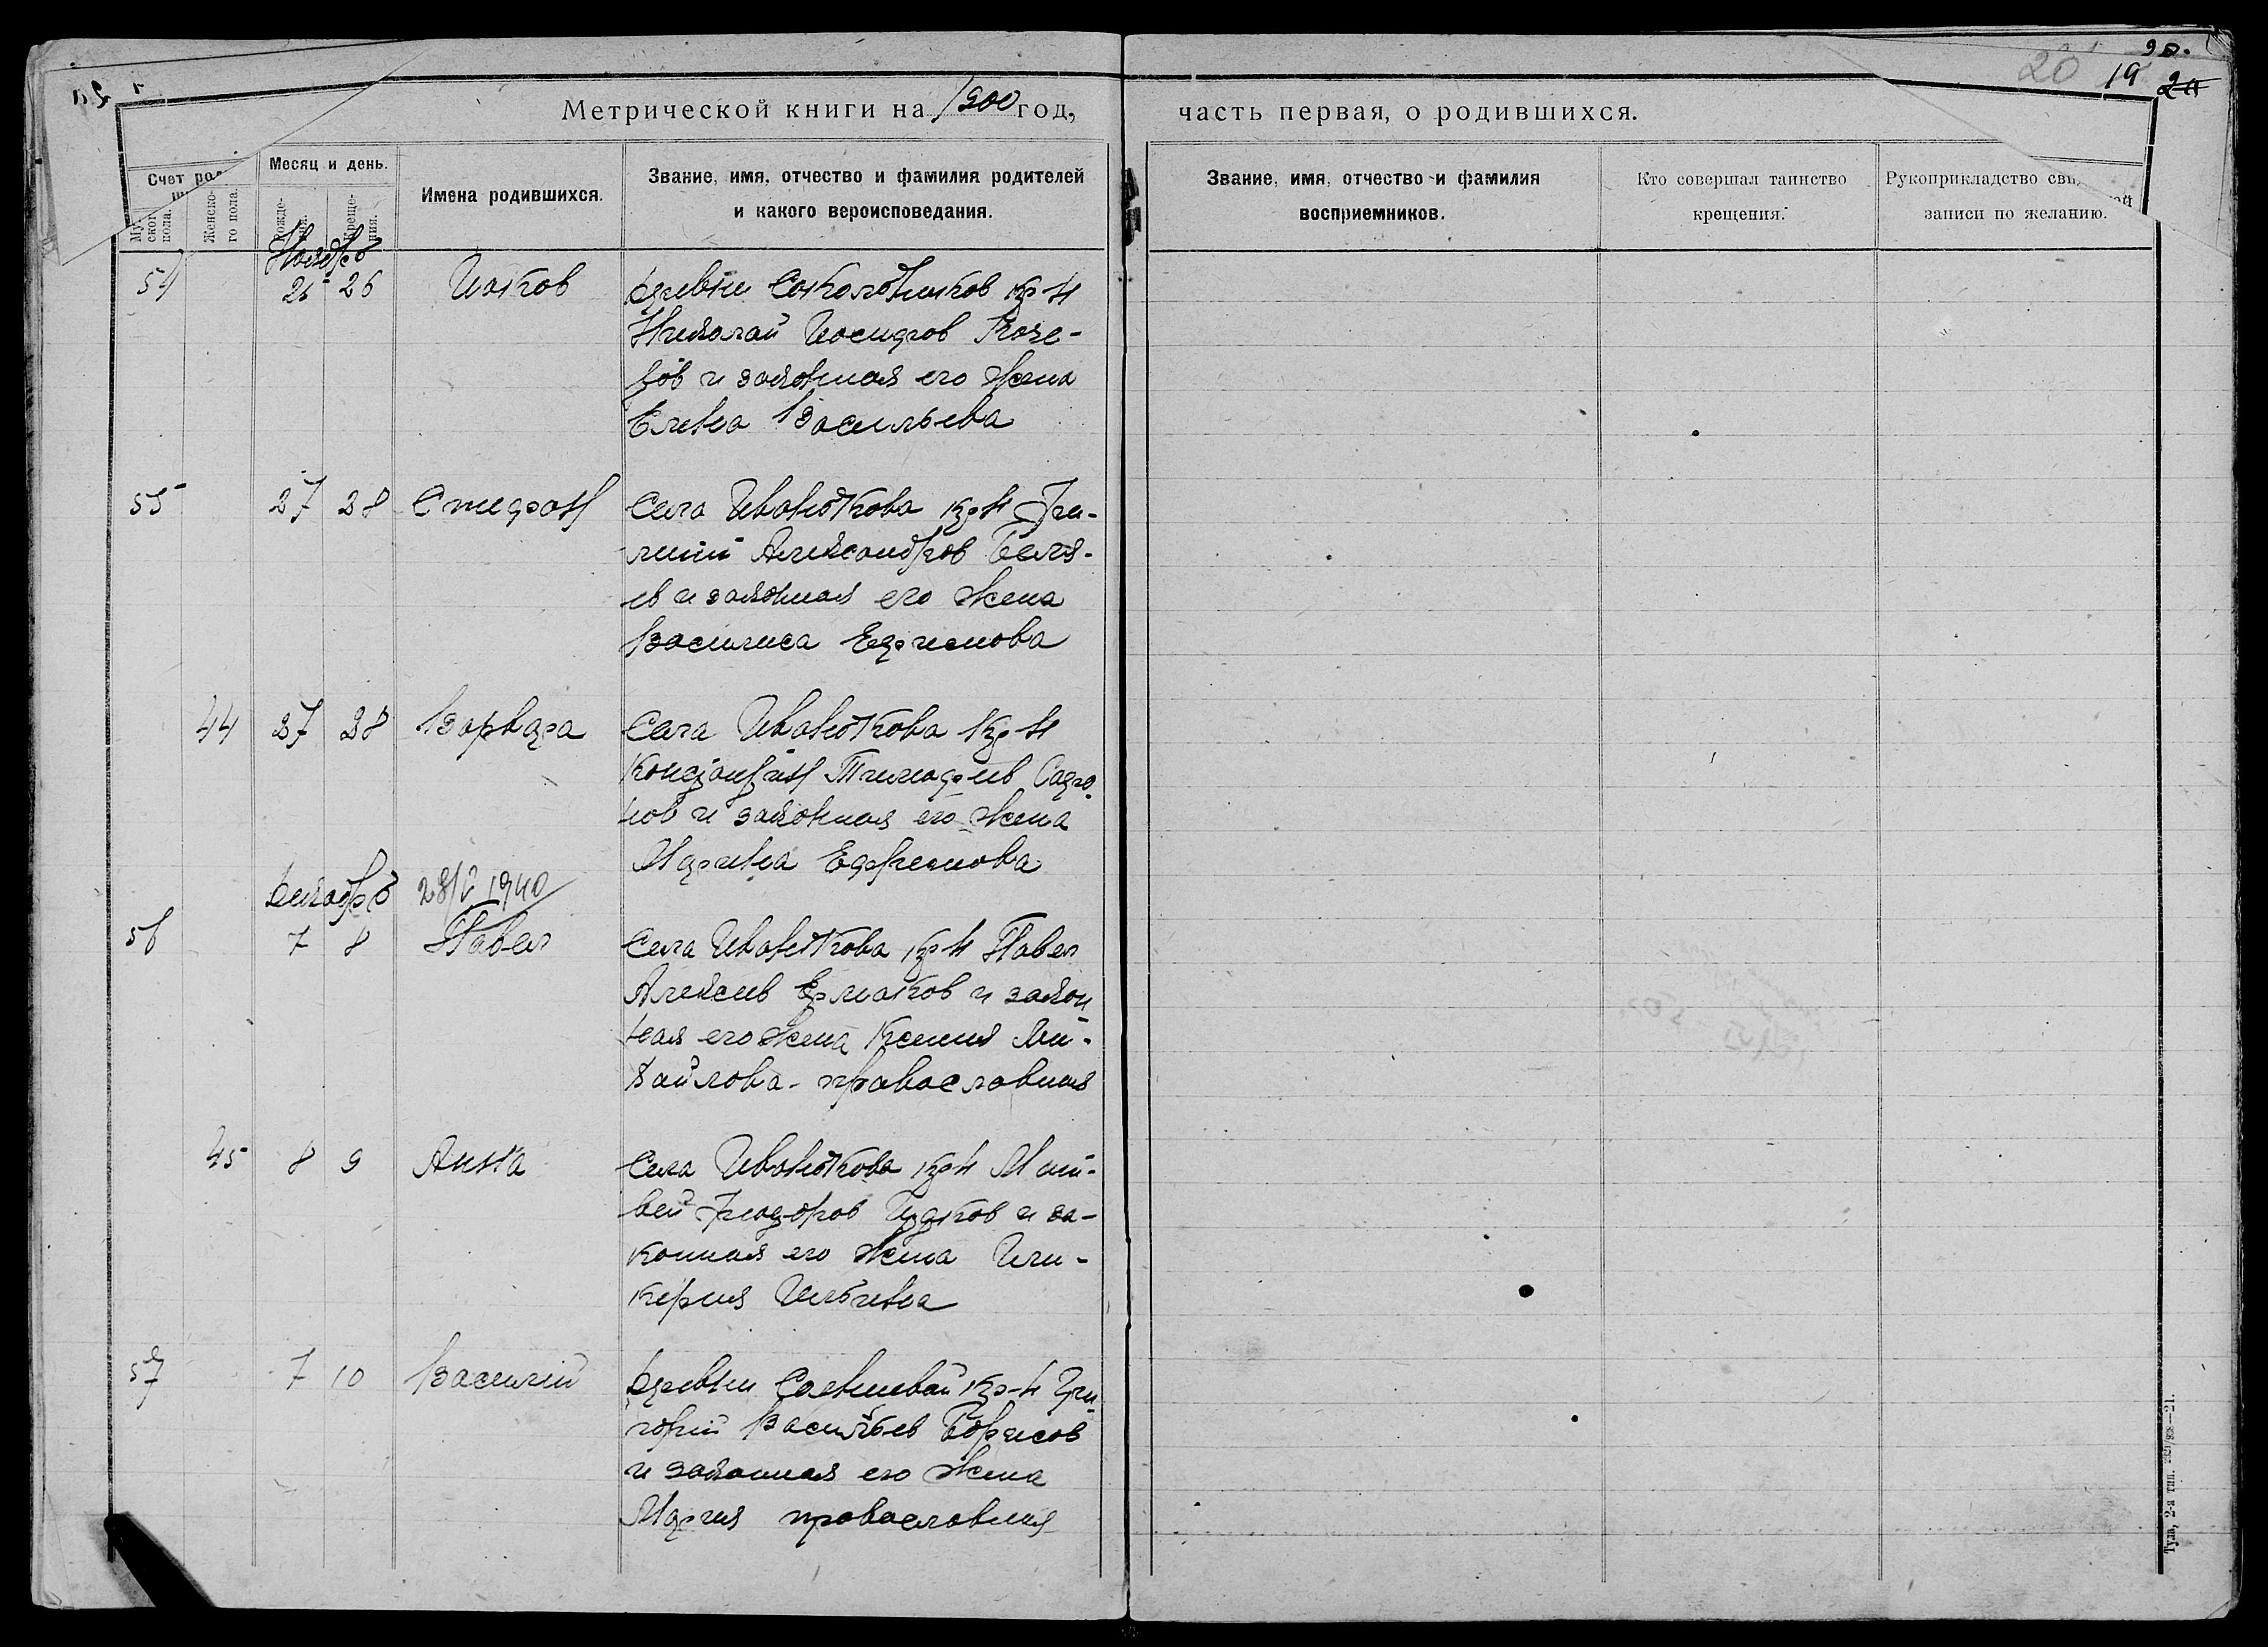 20 19 20 20.
Метрической книги на 1900 год,
часть первая, о родившихся.
Счет
Мужского пола.
Женского пола.
Месяц и день.
Рождения.
Крещения.
Имена родившихся.
Звание, имя, отчество и фамилия родителей
и какого вероисповедания.
Звание, имя, отчество и фамилия
восприемников.
Кто совершал таинство
крещения.
Рукоприкладство
записи по желанию.
Ноябрь
54 25 26 Иаков деревни кр-н
Николай Иосифов Козе-
и законная его жена
Елена Васильева
55 27 28 Стефан Села Иванькова кр-н Фи-
липп Александров Беля-
ев и законная его жена
Василиса Ефимова
44 27 28 Варвара Села Иванькова кр-н
Константин Тимофеев Сафро-
нов и законная его жена
Ефремова
Декабрь 28/ 1940
56 7 8 Павел Села Иванькова кр-н Павел
Алексеев Ермаков и закон
ная его жена Ксения Ми-
хайлова - православная
45 8 9 Анна Села Иванькова кр-н Мат-
вей Феодоров и за-
конная его жена Гли-
керия
57 7 10 Василий деревни кр-н Гри
горий Васильев Борисов
и законная его жена
Мария православная
Тула, 2-я тип.